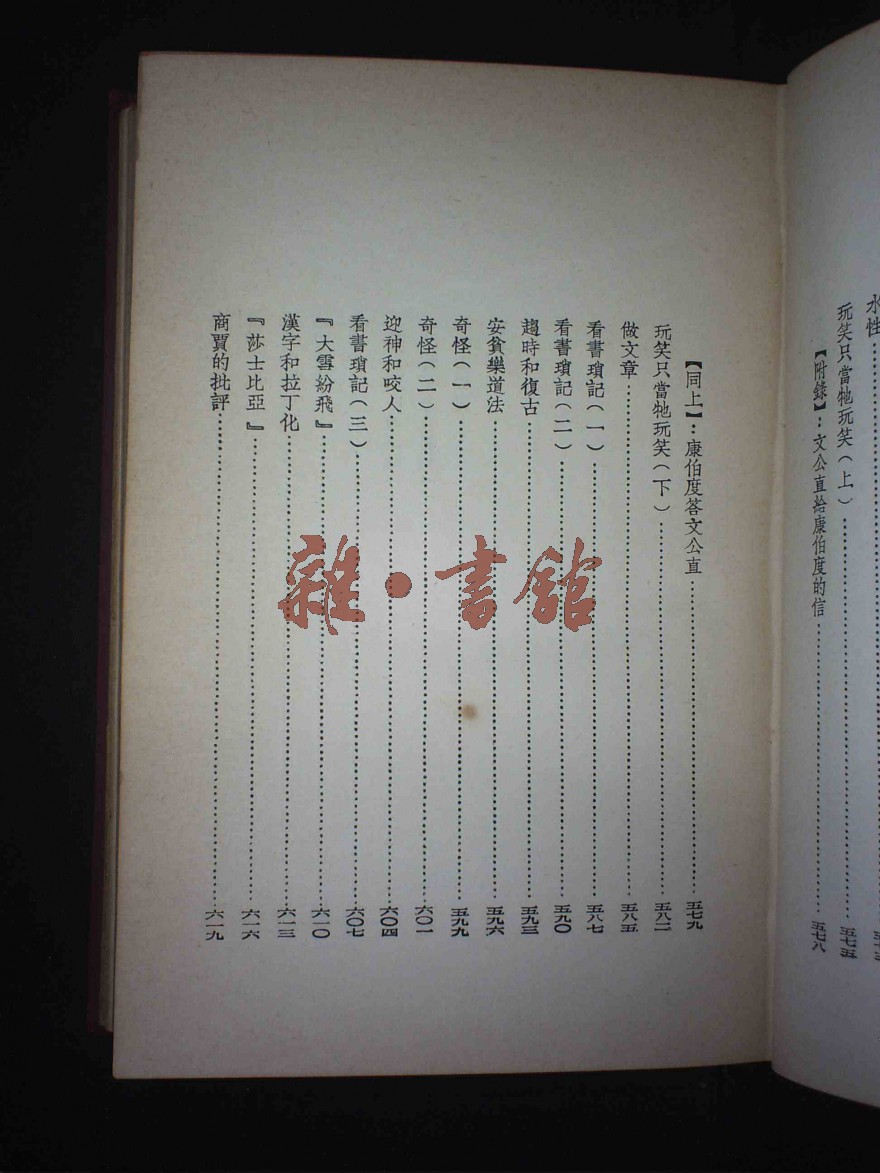 水性
玩笑只當牠玩笑（上）……五七五
【附錄】：文公直給康伯度的信……五七八
【同上】：康伯度答文公直……五七九
玩笑只當牠玩笑（下）……五八二
做文章……五八五
看書瑣記（一）……五八七
看書瑣記（二）……五九〇
趨時和復古……五九三
安貧樂道法……五九六
奇怪（一）……五九九
奇怪（二）……六〇一
迎神和咬人……六〇四
看書瑣記（三）……六〇七
『大雪紛飛』……六一〇
漢字和拉丁化……六一三
『莎士比亞』……六一六
商賈的批評……六一九
雜·書館